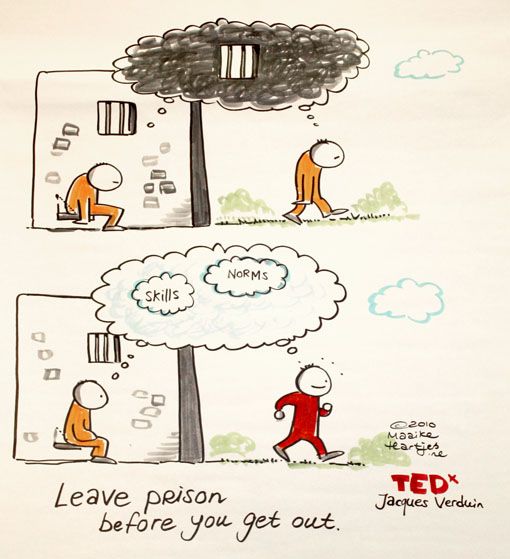 NORMS
Skills
©2010
Maaike
Hartjes
.nl
TEDx
Jacques Verduin
Leave prison
before you get out.